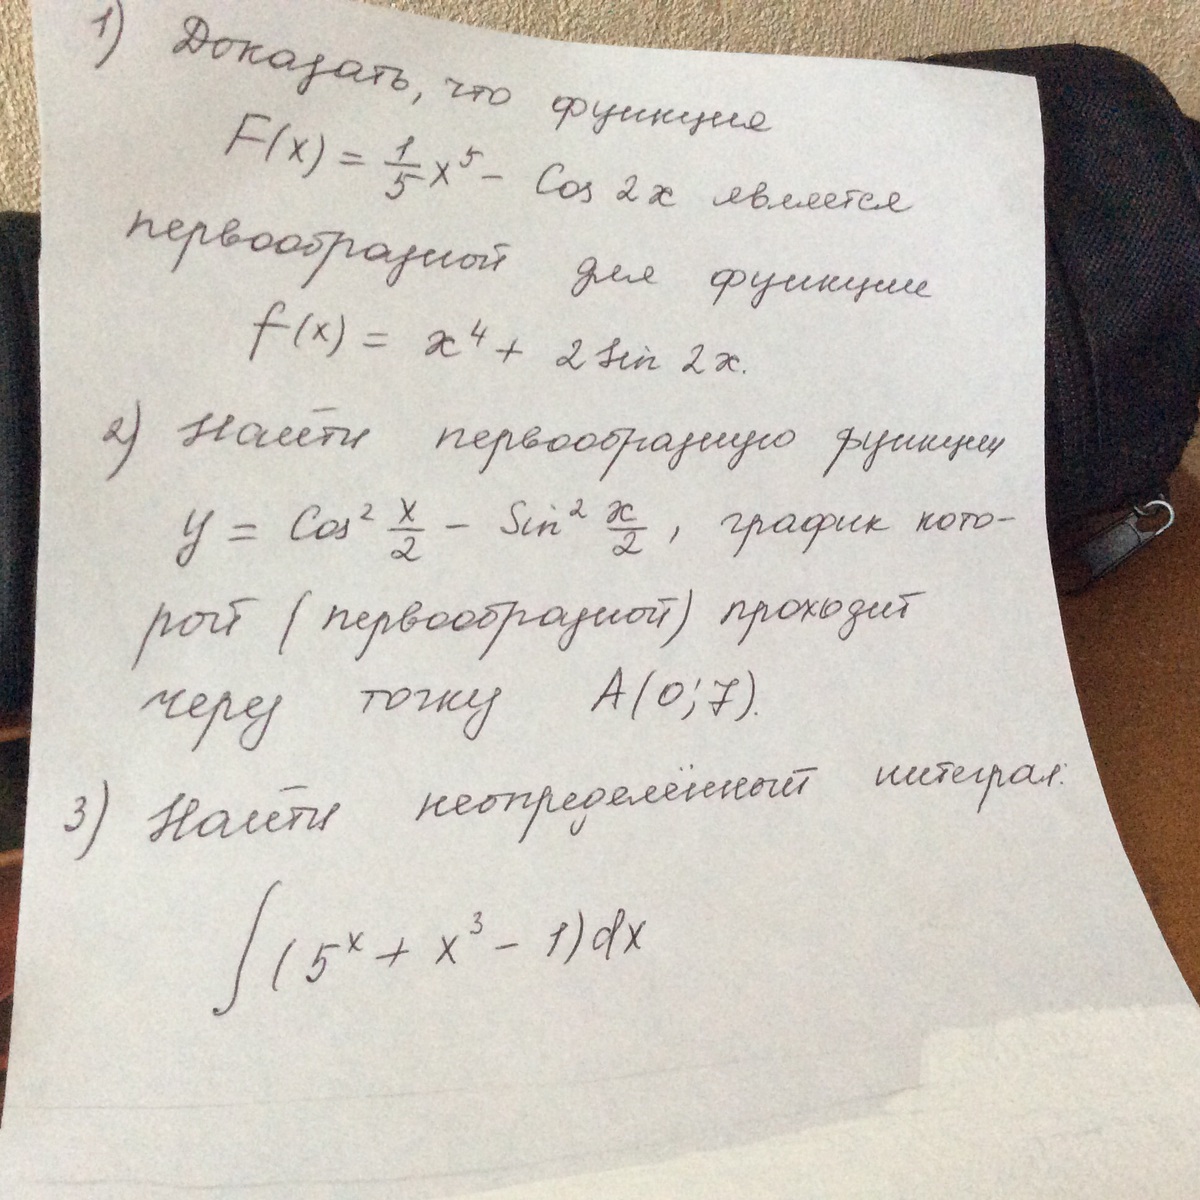 1) Доказать, что функция
F(x) = 1/5 x⁵ - Cos 2x является
первообразной для функции
f(x) = x⁴ + 2 Sin 2x.
2) Найти первообразную функции
y = Cos² x/2 - Sin² x/2, график кото-
рой (первообразной) проходит
через точку A(0;7).
3) Найти неопределённый интеграл:
∫(5ˣ + x³ - 1)dx